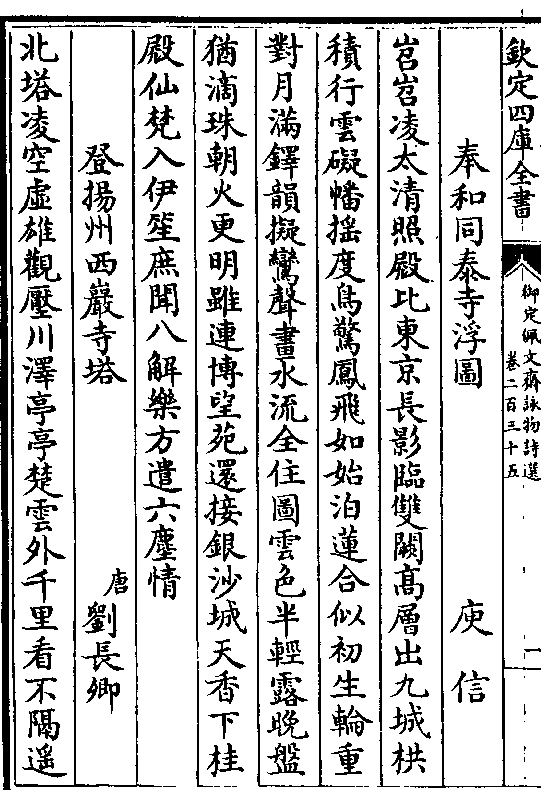 欽定四庫全書
御定佩文齋詠物詩選
卷二百三十五
一
奉和同泰寺浮圖　庾信
岧岧凌太清照殿比東京長影臨雙闕高層出九城栱
積行雲礙幡揺度鳥驚鳳飛如始泊蓮合似初生輪重
對月滿鐸韻擬鸞聲畫水流全住圖雲色半輕露晚盤
猶滴珠朝火更明雖連博望苑還接銀沙城天香下桂
殿仙梵入伊笙庶聞八解樂方遣六塵情
登揚州西巖寺塔　唐劉長卿
北塔凌空虛雄觀壓川澤亭亭楚雲外千里看不隔遥